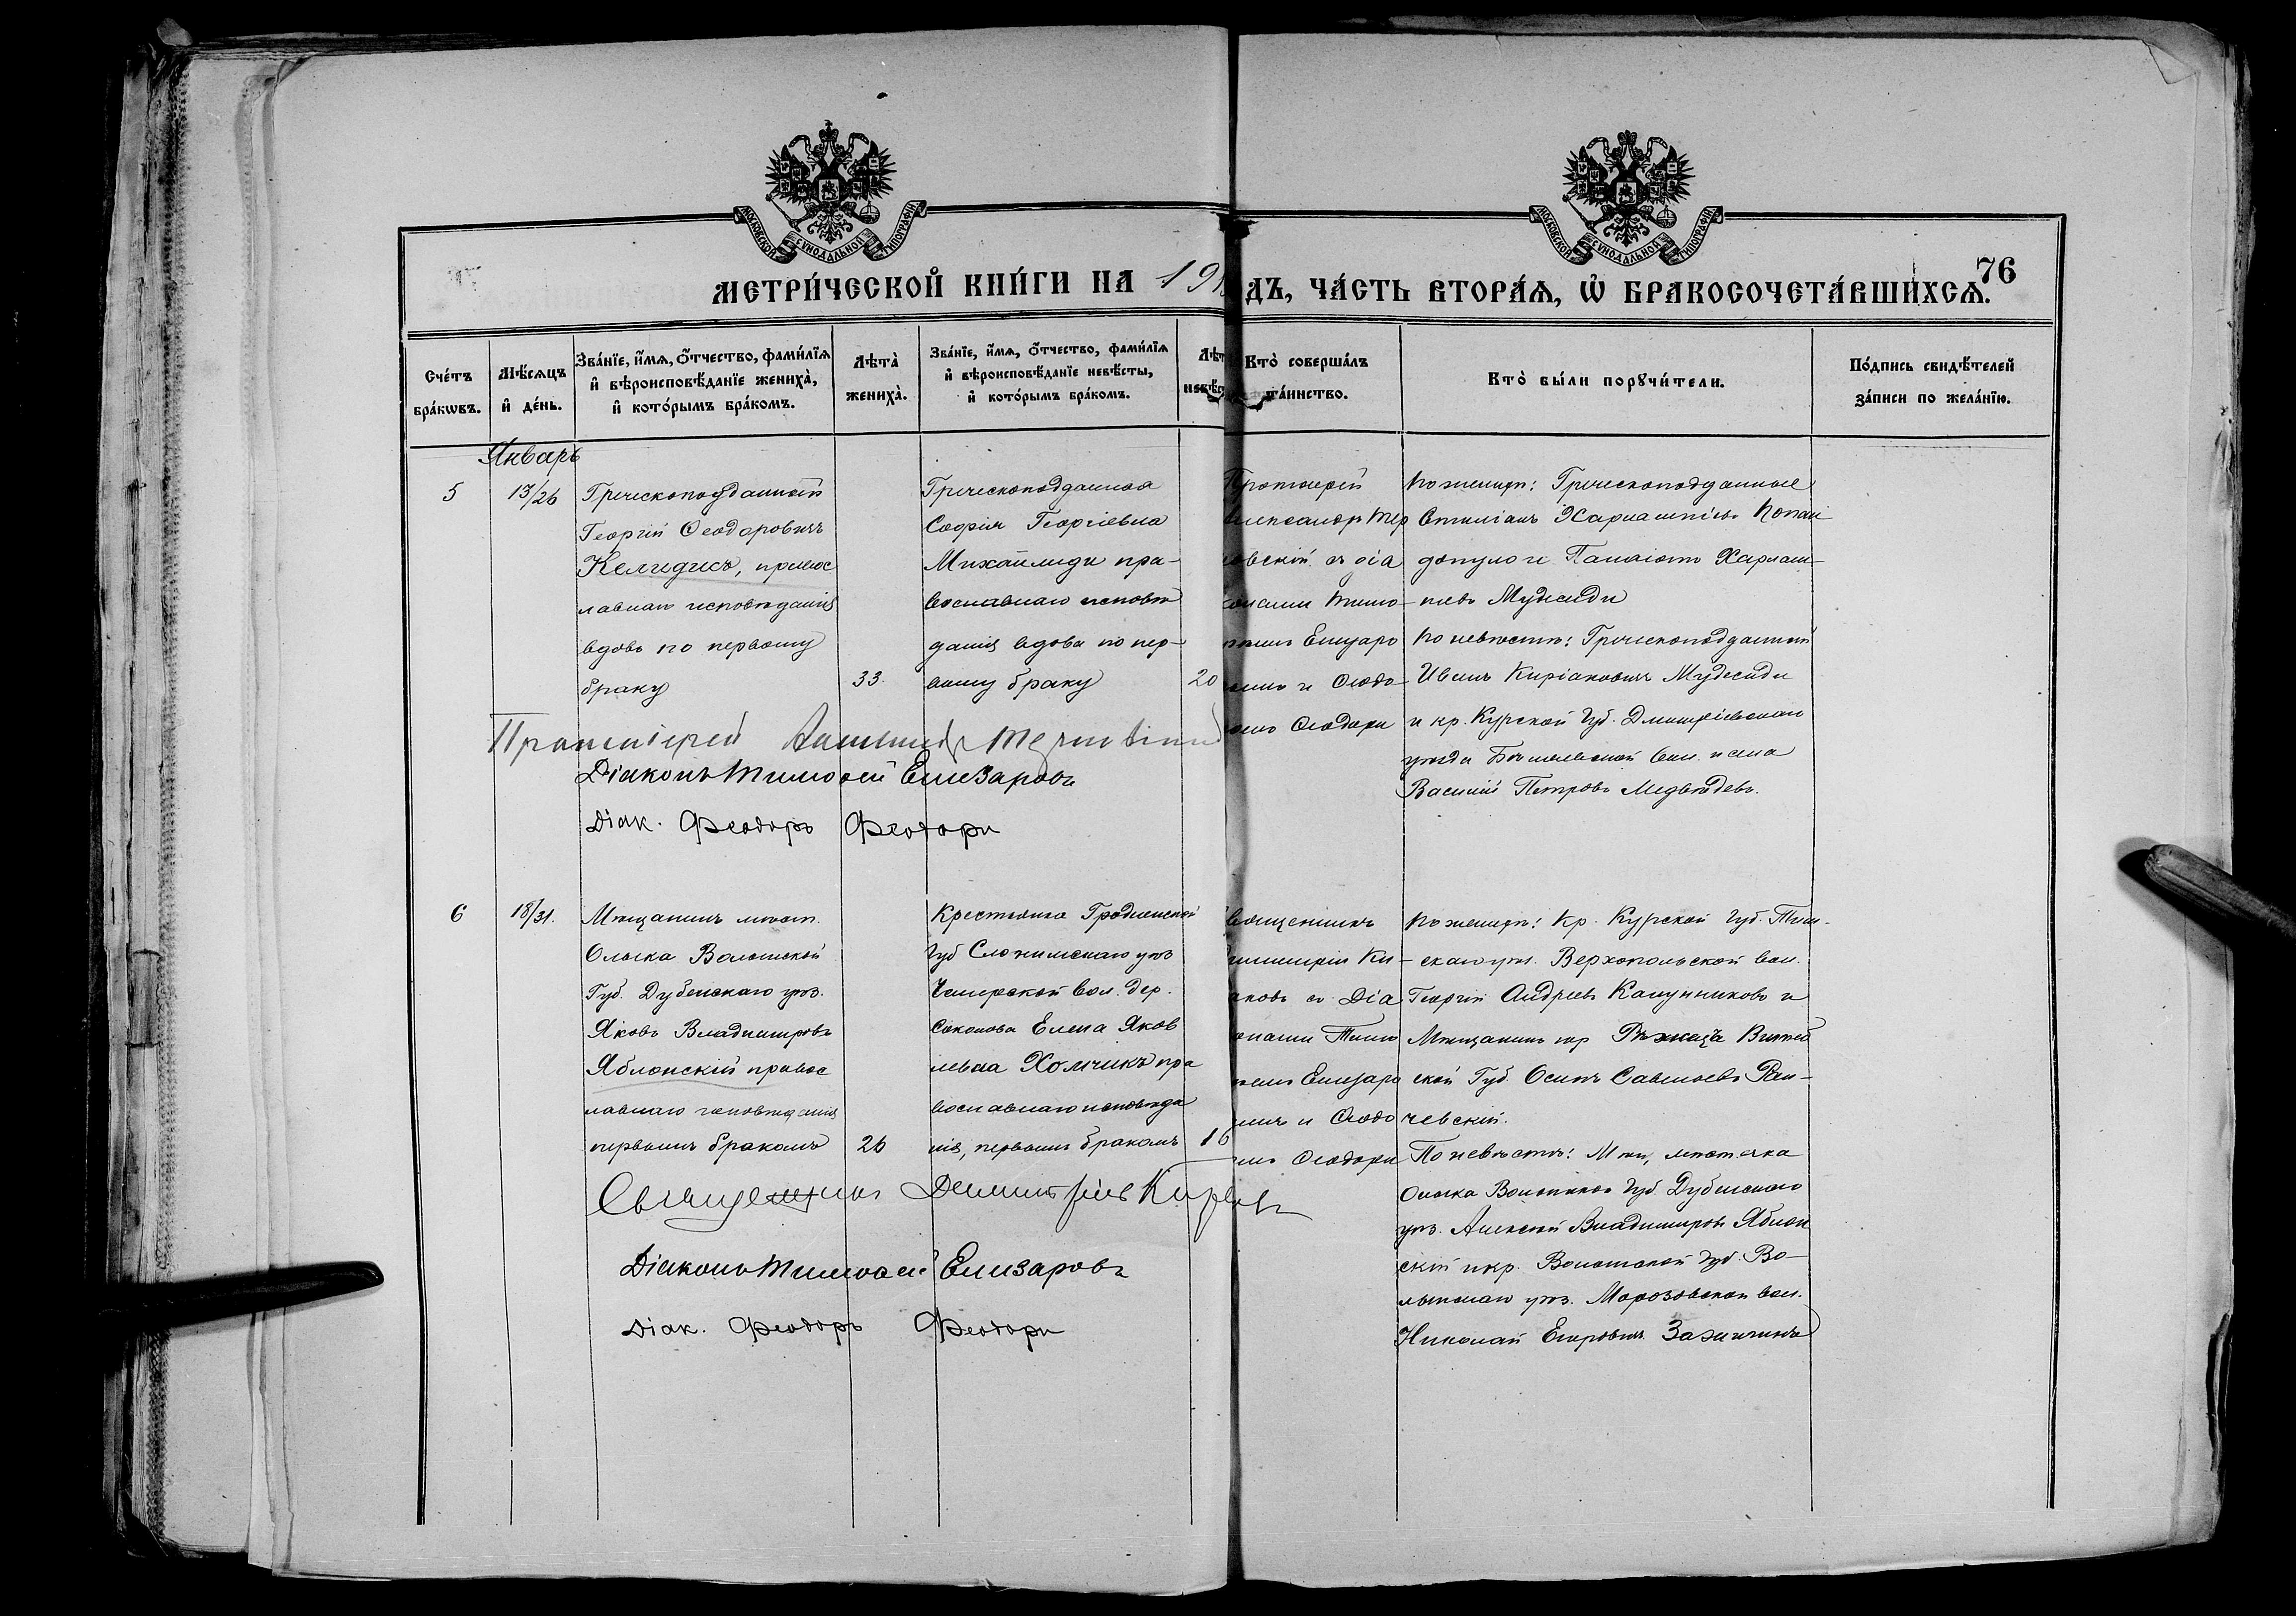 МОСКОВСКОЙ СУНОДАЛЬНОЙ ТИПОГРАФІИ
МОСКОВСКОЙ СУНОДАЛЬНОЙ ТИПОГРАФІИ
76
МЕТРИ́ЧЕСКОЙ КНИ́ГИ НА 19
ДЪ, ЧА́СТЬ ВТОРА́Ѧ, Ѡ҆ БРАКОСОЧЕТА́ВШИХСѦ.
Сче́тъ бра́кѡвъ.
Мѣ́сѧцъ и҆ де́нь.
Зва́нїе, и҆́мѧ, ѻ҆́тчество, фами́лїѧ
и҆ вѣроисповѣ́данїе жениха̀,
и҆ кото́рымъ бра́комъ.
Лѣта̀
жениха̀.
Зва́нїе, и҆́мѧ, ѻ҆́тчество, фами́лїѧ
и҆ вѣроисповѣ́данїе невѣ́сты,
и҆ кото́рымъ бра́комъ.
Лѣт
невѣс
Кто̀ соверша́лъ
та́инство.
Кто̀ бы́ли порꙋчи́тели.
По́дпись свидѣ́телей
за́писи по жела́нїю.
Январь
5
13/26
Греческоподданный
Георгій Ѳеодоровичъ
Келидисъ, правос
лавнаго исповѣданія
вдовъ по первому
браку
33.
Греческоподданная
Софія Георгіевна
Михаилиди пра-
вославнаго исповѣ
данія вдова по пер-
вому браку
20
Протоіерей
лександръ Тер
овскій съ діа
конами Тимо-
ѳеемъ Елизаро
вымъ и Ѳеодо-
ромъ Ѳеодори
По женихѣ: Греческоподданные
Стиліанъ Харлампіевъ Копаи
допуло и Панаіотъ Харлам-
піевъ Мудесиди
По невѣстѣ: Греческоподданный
Иванъ Киріаковичъ Мудесиди
и кр. Курской Губ. Дмитріевскаго
уѣзда вол. и села
Василій Петровъ Медвѣдевъ.
Протоіерей Александръ
Діаконъ Тимоѳей Елизаровъ
Діак. Ѳеодоръ Ѳеодори
6
18/31.
Мѣщанинъ мѣст.
Олыка Волынской
Губ. Дубенскаго уѣз.
Яковъ Владимировъ
Яблонскій правос
лавнаго исповѣданія
первымъ бракомъ
26
Крестьянка Гродненской
Губ Слонимскаго уѣз
Чемерской вол. дер.
Соколова Елена Яков
левна Хомчикъ пра
вославнаго исповѣда
нія, первымъ бракомъ
16
вященникъ
имитрій Ки-
аковъ съ Діа
конами Тимо
ѳеемъ Елизаро
вымъ и Ѳеодо
ромъ Ѳеодори
По женихѣ: Кр. Курской Губ. Тим-
скаго уѣз. Верхопольской вол.
Георгій Андреевъ Калунниковъ и
Мѣщанинъ гор Рѣжица Витеб
ской Губ. Осипъ Савельевъ Ран-
чевскій.
По невѣстѣ: Мѣщ, мѣстечка
Олыка Волынской Губ. Дубенскаго
уѣз. Алексѣй Владимировъ Яблон
скій и кр. Волынской Губ. Во-
лынскаго уѣз. Морозовской вол.
Николай Егоровичъ Захичинъ
Священникъ Димитрій
Діаконъ Тимоѳей Елизаровъ
Діак. Ѳеодоръ Ѳеодори